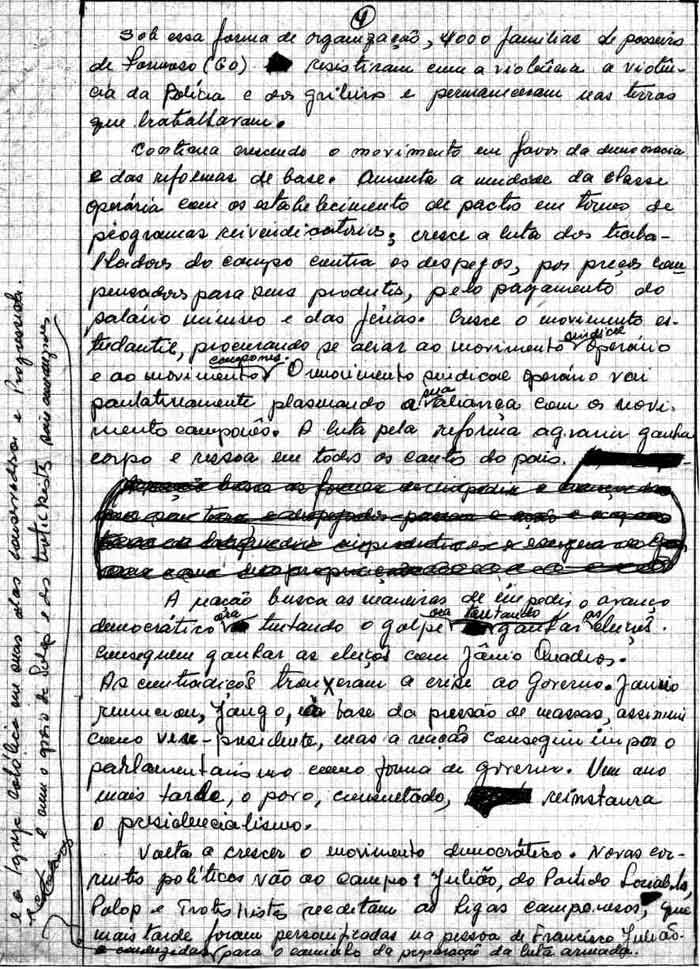 4
Sob essa forma de organização, 4000 famílias de posseiros
de Formoso (GO) resistiram com a violência a violên-
cia da Polícia e dos grileiros e permaneceram nas terras
que trabalhavam.
Continua crescendo o movimento em favor da democracia
e das reformas de base. Aumenta a unidade da classe
operária com os estabelecimento de pactos em torno de
programas reivindicatórios; cresce a luta dos traba-
lhadores do campo contra os despejos, por preços com-
pensadores para seus produtos, pelo pagamento do
salário mínimo e das férias. Cresce o movimento es-
tudantil, procurando se aliar ao movimento sindical operário
e ao movimento camponês. O movimento sindical operário vai
paulatinamente plasmando a sua aliança com os movi-
mento camponês. A luta pela reforma agrária ganha
corpo e ressoa em todos os cantos do país.
A reação busca as maneiras de impedir o avanço
democrático ora tentando o golpe ora tentando ganhar as eleições.
Conseguem ganhar as eleições com Jânio Quadros.
As contradições trouxeram a crise ao Governo. Janio
renunciou, Jango, na base da pressão de massas, assumiu
como vice-presidente, mas a reação conseguiu impor o
parlamentarismo como forma de governo. Um ano
mais tarde, o povo, consultado, reinstaura
o presidencialismo.
Volta a crescer o movimento democrático. Novas cor-
rentes políticas vão ao campo: Julião, do Partido Socialista,
Polop e Trotskistas reeditam as ligas camponesas, que
mais tarde foram personificadas na pessoa de Francisco Julião
e conduzidas para o caminho da preparação da luta armada.
e a Igreja Católica em suas alas conservadora e Progressista.
e com o apoio da Polop e dos trotskistas são conduzidas